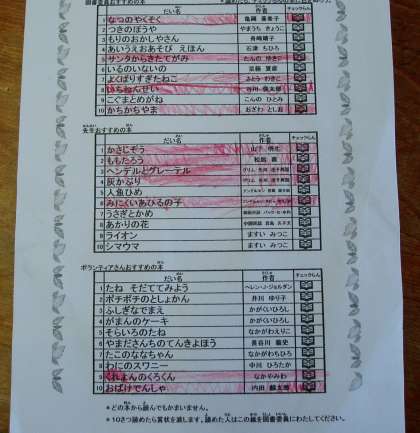 図書委員おすすめの本
だい名 作者 チェックらん
1 なつのやくそく
2 つきのぼうや やまうち きょうこ
3 もりのおかしやさん 舟崎靖子
4 あいうえおあそび えほん 石津 ちひろ
5 サンタからきたてがみ たんの ゆきこ
6 いるのいないの 京極 夏彦
7 よくばりすぎたねこ
8 いちねんせい 谷川 俊太郎
9 こぐまとめがね こんの ひとみ
10 かちかちやま おざわ としお
先生おすすめの本
だい名 作者 チェックらん
1 かさじぞう
2 ももたろう 松居 直
3 ヘンデルとグレーテル
4 灰かぶり
5 人魚ひめ
6 みにくいあひるの子
7 うさぎとかめ
8 あかりの花
9 ライオン ますい みつこ
10 シマウマ ますい みつこ
ボランティアさんおすすめの本
だい名 作者 チェックらん
1 たね そだててみよう ヘレン・J・ジョルダン
2 ポチポチのとしょかん 井川 ゆり子
3 ふしぎなでまえ かがくいひろし
4 がまんのケーキ かがくいひろし
5 そらいろのたね なかがわえりこ
6 やまださんちのてんきよほう 長谷川 義史
7 たこのななちゃん なかがわちひろ
8 わにのスワニー 中川 ひろたか
9 くれよんのくろくん なかやみわ
10 おばけでんしゃ 内田 麟太郎
*どの本から読んでもかまいません。
*10さつ読めたら賞状を渡します。読めた人はこの紙を図書委員にわたしてください。